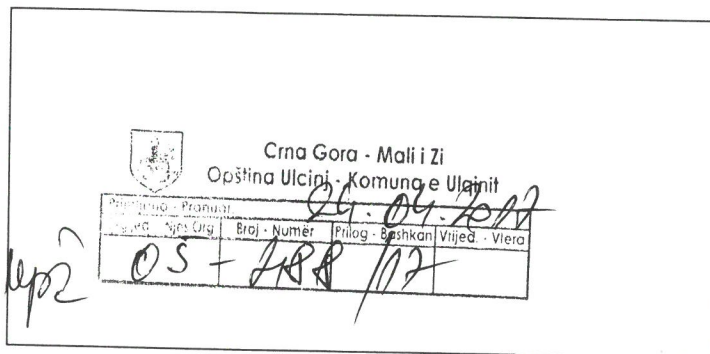 Crna Gora - Mali i Zi
Opština Ulcinj - Komuna e Ulqinit
Primljeno - Pranuar 24.04.2017
Njes Org Broj - Numër Prilog - Bashkan Vrijed. - Vlera
OŠ - 488 /17